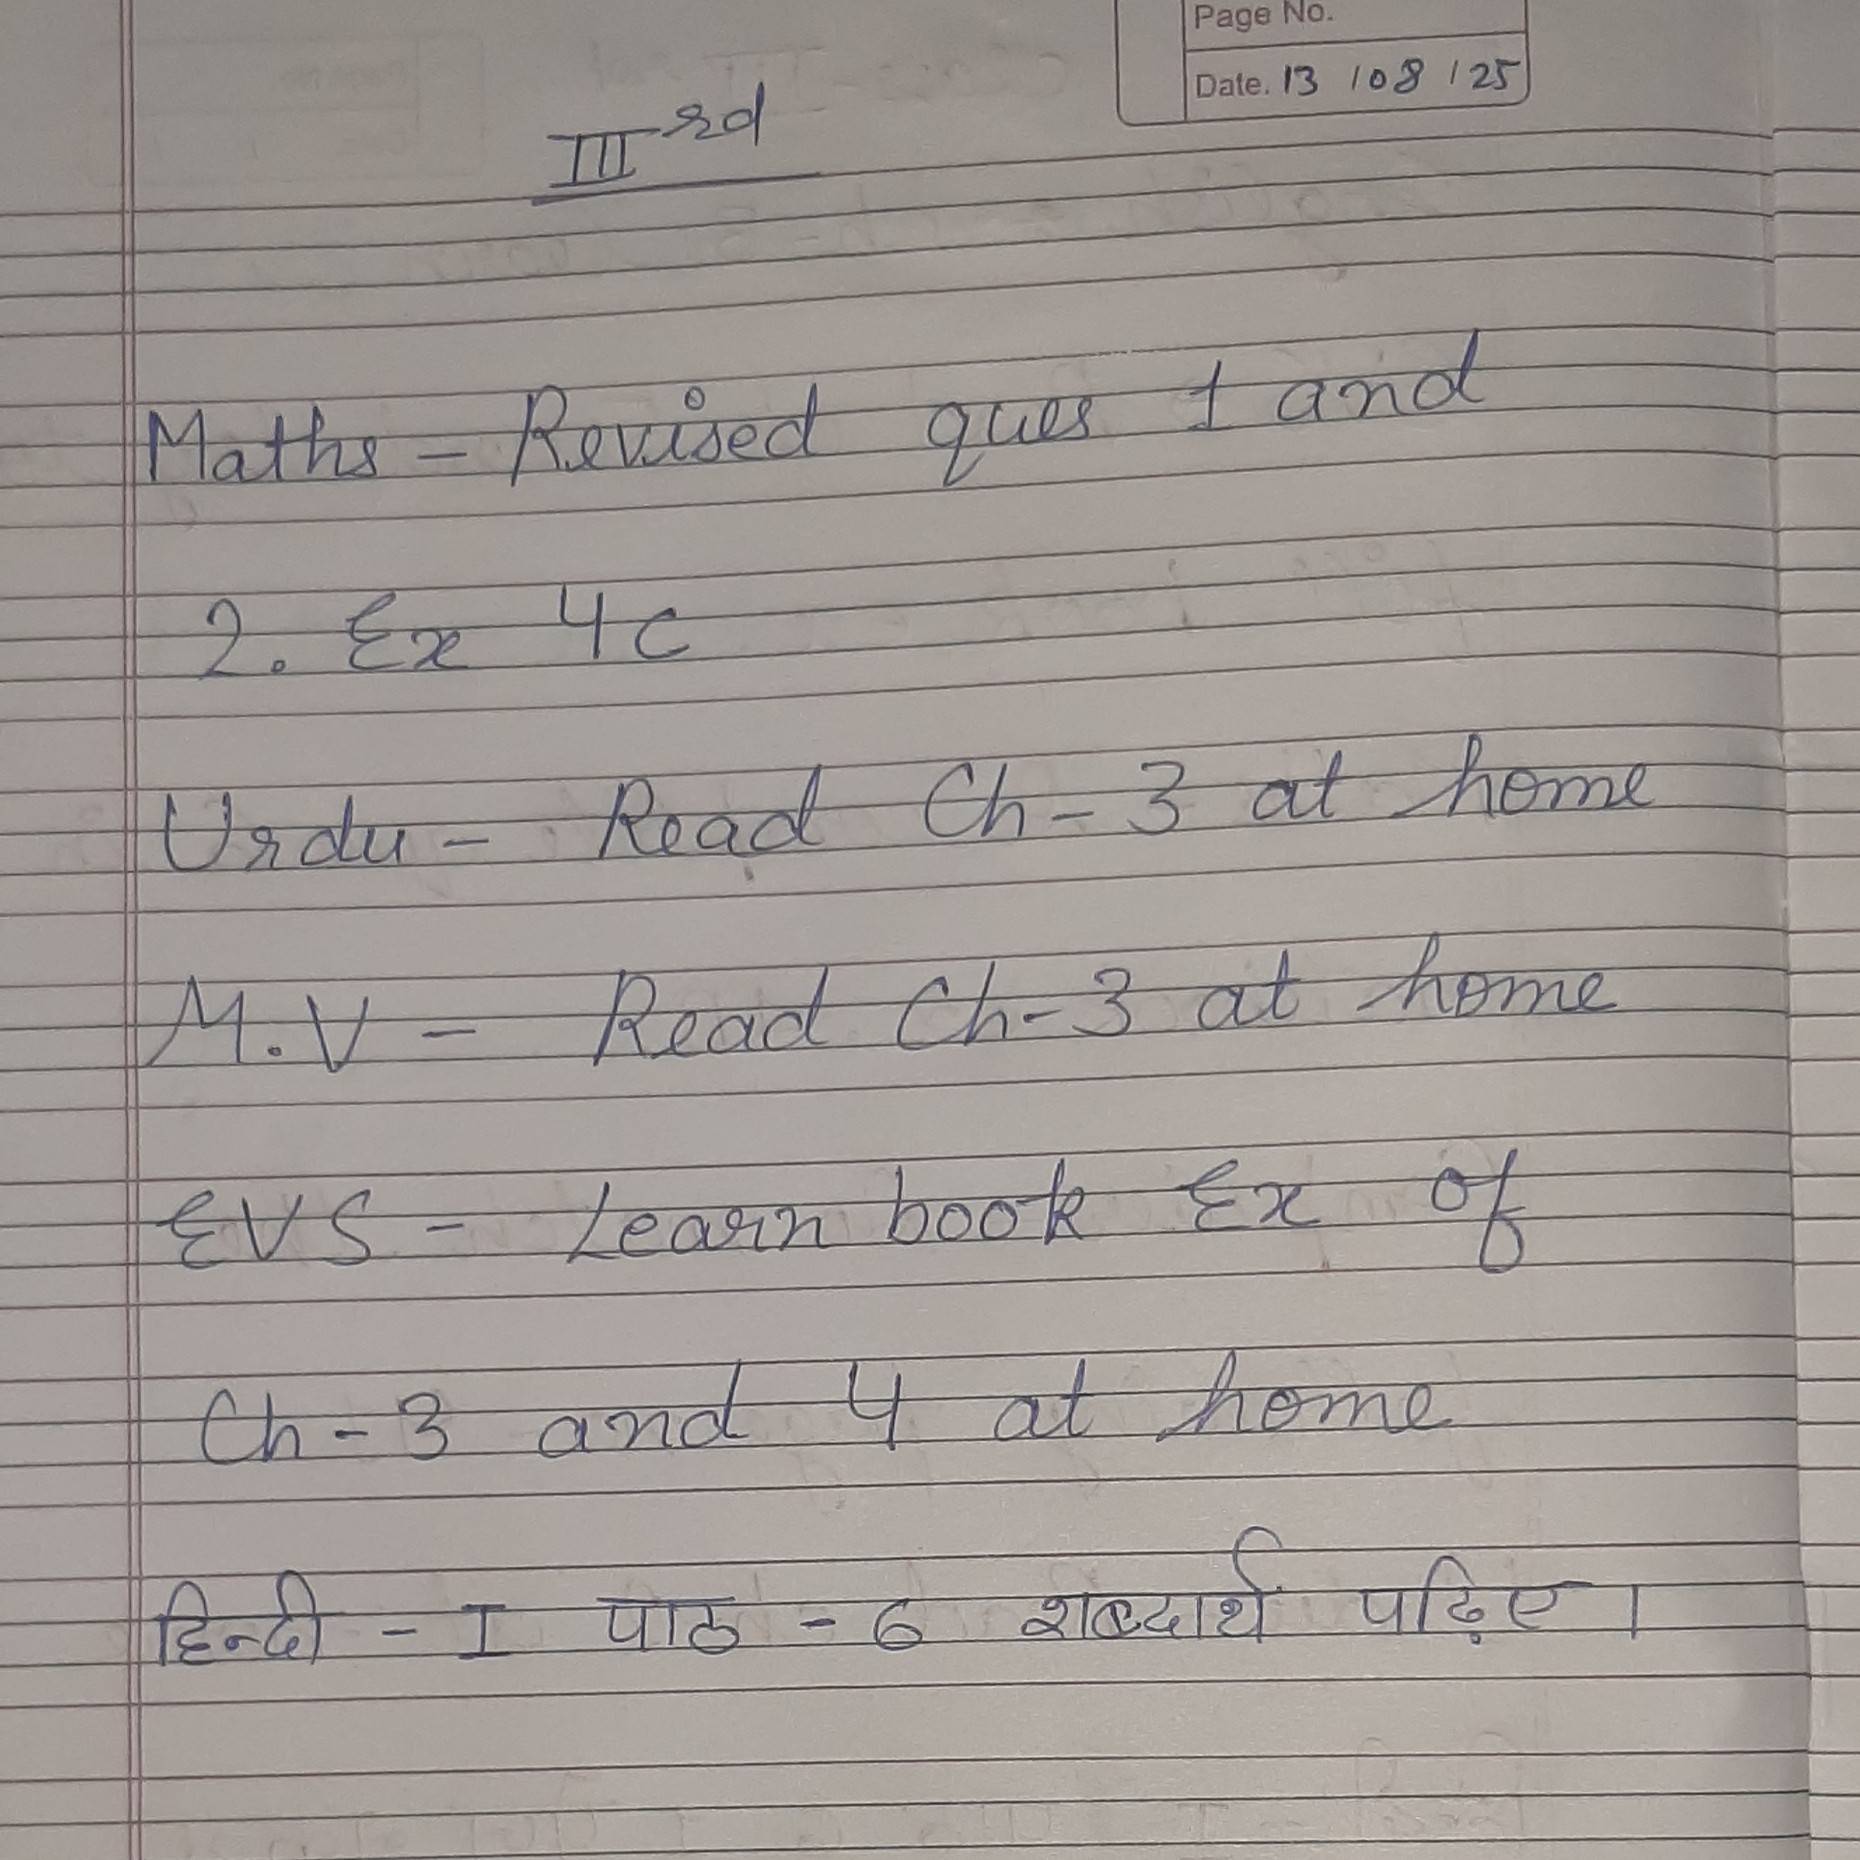 Page No.
Date. 13 / 08 / 25
III rd
Maths - Revised ques 1 and
2. Ex 4c
Urdu - Read Ch-3 at home
M.V - Read Ch-3 at home
EVS - Learn book Ex of
Ch-3 and 4 at home
हिन्दी - I पाठ - 6 शब्दार्थ पढ़िए।